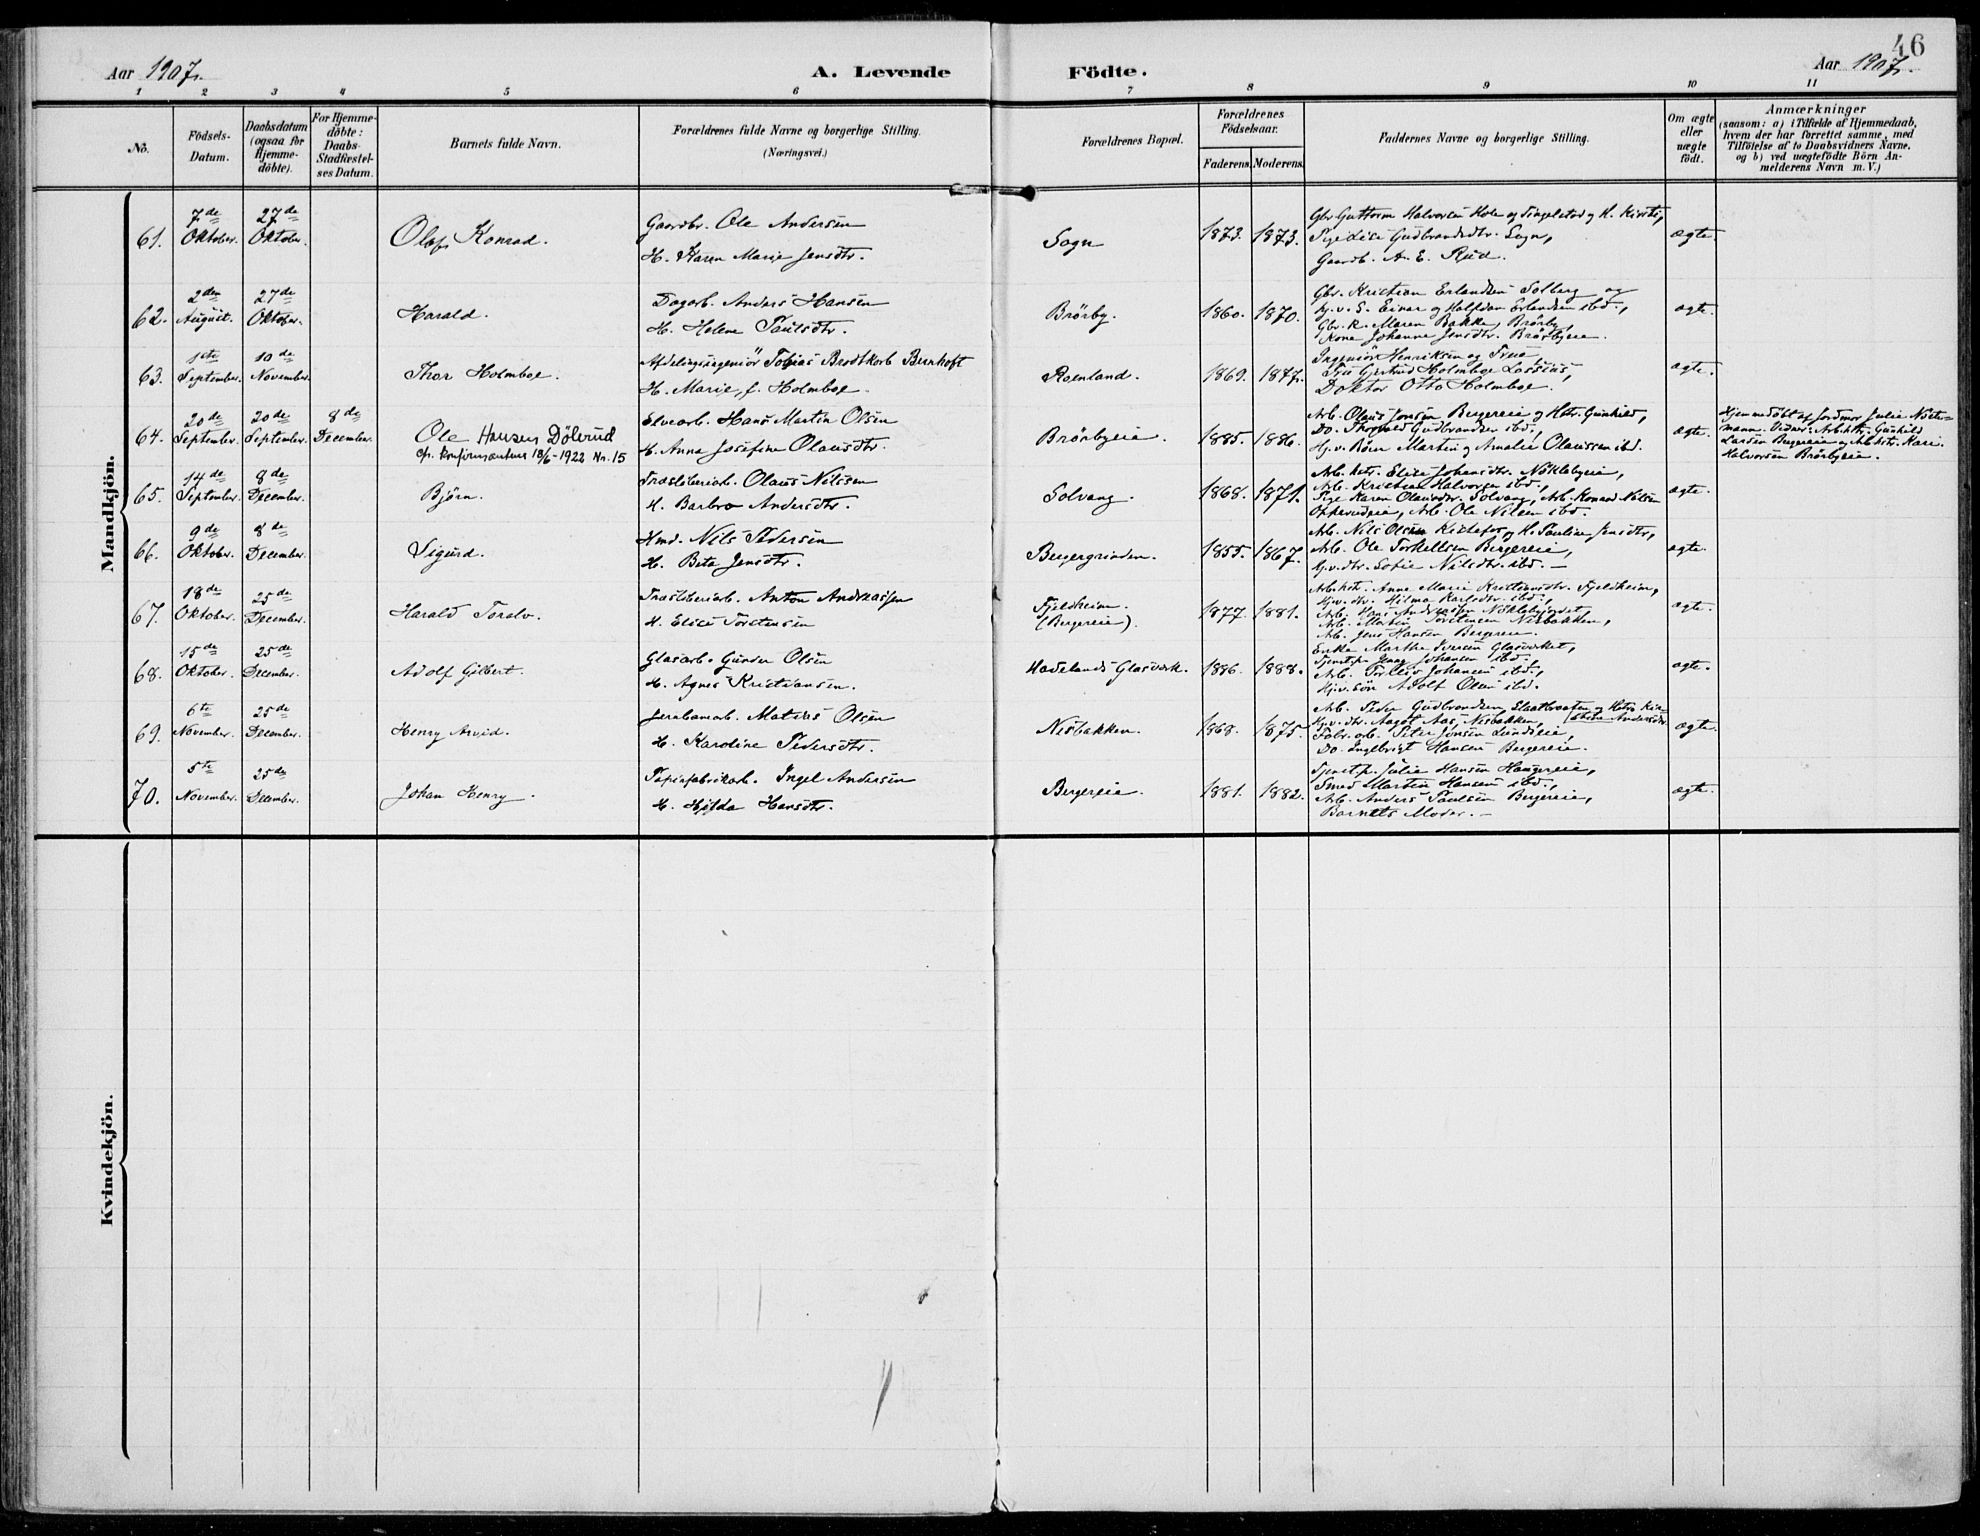 46
Aar 1907.
A. Levende Födte.
Aar 1907.
1 2 3 4 5 6 7 8 9 10 11
No.
Födsels-
Datum.
Daabsdatum
(ogsaa for
Hjemme-
döbte).
For Hjemme-
döbte:
Daabs-
Stadfæstel-
ses Datum.
Barnets fulde Navn.
Forældrenes fulde Navne og borgerlige Stilling.
(Næringsvei.)
Forældrenes Bopæl.
Forældrenes
Födselsaar.
Faderens. Moderens.
Faddernes Navne og borgerlige Stilling.
Om ægte
eller
uægte
födt.
Anmærkninger
(saasom: a) i Tilfælde af Hjemmedaab,
hvem der har forrettet samme, med
Tilföielse af to Daabsvidners Navne.
og b) ved uægtefödte Börn An-
melderens Navn m. V.)
Mandkjön.
61.
7de
Oktober.
27de
Oktober.
Olaf Konrad.
Gaardbr. Ole Andersen
H. Karen Marie Jensdtr.
Sogn
1873. 1873.
Gbr. Guttorm Halvorsen Hole og Tingelstad og H. Kirsti,
Pige Lise Gudbrandsdtr. Sogn,
Gaardb. A. E. Rud.
ægte.
62.
2den
August.
27de
Oktober.
Harald.
Dagarb. Anders Hansen
H. Helene Paulsdtr.
Brörby.
1860. 1870.
Gbr. Kristian Erlandsen Solberg og
hj.v. S. Einar og Halfdan Erlandsen ibd.,
Gbr. K. Maren Bakke, Brörby,
Kone Johanne Jensdtr. Brörbyeie.
ægte.
63.
1ste
September.
10de
November.
Thor Holmboe.
Afdelingsingeniör Tobias Brodtkorb Bernhoft
H. Marie, f. Holmboe.
Roenland.
1869. 1877.
Ingeniör Henriksen og Frue
Fru Gjertrud Holmboe Lossius,
Doktor Otto Holmboe.
ægte.
64.
20de
September.
20de
September.
8de
December.
Ole Hansen Dölerud
cfr. konfirmanten 18/6-1922 Nr. 15
Elvearb. Hans Martin Olsen
H. Anna Josefine Olausdtr.
Brörbyeie.
1885. 1886.
Arb. Olaus Jonsen Bergereie og Hstr. Gunhild,
Do. Thorvald Gudbrandsen ibd.,
Hj.v. Börn Martin og Amalie Olaussen ibd.
ægte.
Hjemmedöbt af Jordmor Julie Nöste-
mann. Vidner: Arb.kstr. Gunhild
Larsen Bergereie og Arb.kstr. Kari
Halvorsen Brörbyeie.
65.
14de
September.
8de
December.
Bjørn.
Træsliberiarb. Olaus Nilsen
H. Barbro Andersdtr.
Solvang.
1868. 1871.
Arb. kstr. Elise Johansdtr. Nöklebyeie,
Arb. Kristian Halvorsen ibd.,
Pige Karen Olausdtr. Solvang, Arb. Konrad Nilsen
Opperudeie, Arb. Ole Nilsen ibd.
ægte.
66.
9de
Oktober.
8de
December.
Sigurd.
Hmd. Nils Pedersen
H. Beta Jensdtr.
Bergergrinden.
1855. 1867.
Arb. Nils Olsen Kistefos og H. Pauline Jensdtr.,
Arb. Ole Torkelsen Bergereie,
hj.v. dtr. Sofie Nilsdtr. ibd. —
ægte.
67.
18de
Oktober.
25de
December.
Harald Toralv.
Træsliberiarb. Anton Andreassen
H. Elise Torstensen
Fjeldheim.
(Bergereie).
1877. 1881.
Arb.kstr. Anne Marie Kristiansdtr. Fjeldheim,
Hj.v. dtr. Hilma Karlsdtr. ibd.,
Arb. Hans Andersen Nöklebyjordet,
Arb. Martin Torstensen Nesbakken,
Arb. Jens Hansen Bergereie.
ægte.
68.
15de
Oktober.
25de
December.
Adolf Gilbert.
Glasarb. Gunder Olsen
H. Agnes Kristiansen.
Hadelands Glasværk.
1886. 1888.
Enke Marthe Iversen Glasværket,
Tjenstp. Jenny Johansen ibd.,
Arb. Torleif Johansen ibd.,
Hj.v. sön Adolf Olsen ibd.
ægte.
69.
6te
November.
25de
December.
Henry Arvid.
Jernbanearb. Matius Olsen
H. Karoline Pedersdtr.
Nesbakken.
1868. 1875.
Arb. Peder Gudbrandsen, Slaatbraaten og Hstr. Kir-
stine Andersdtr.
Hj.v. dtr. Aagot Aas, Nesbakken,
Fabr. arb. Peter Jonsen Lundseie,
Do. Ingebrigt Hansen Bergereie.
ægte.
70.
5te
November.
25de
December.
Johan Henry.
Papirfabrikarb. Ingel Andersen
H. Hilda Hansdtr.
Bergereie.
1881. 1882.
Tjenstp. Julie Hansen Haugereie,
Smed Martin Hansen ibd.,
Arb. Anders Paulsen Bergereie,
Barnets Moder. —
ægte.
Kvindekjön.